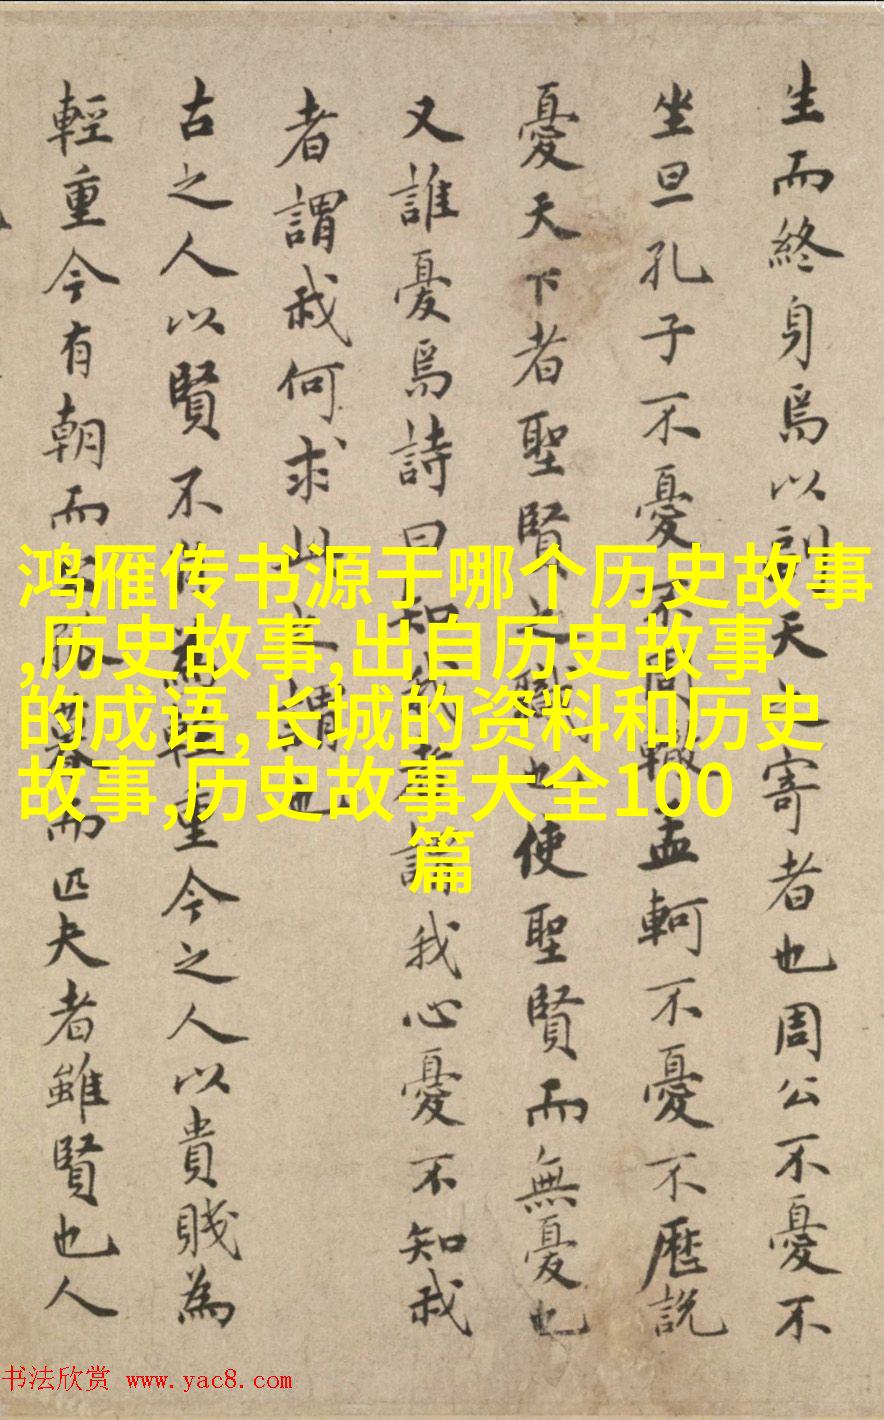 生而終身焉以訓天之寄者也周公不憂不
坐旦孔子不憂不轍孟軻不憂不歷説
憂天下者聖賢之職也使聖賢而無憂也
又誰憂焉詩曰知我者謂我心憂不知我
者謂我何求此之謂也
古之人以賢不為輕重今之人以貴賤為
輕重今有朝而孤暮而匹夫者雖賢也人
鸿雁传书源于哪个历史故事
,历史故事,出自历史故事
的成语,长城的资料和历史
故事,历史故事大全100
篇
书法欣赏 www.yac8.com